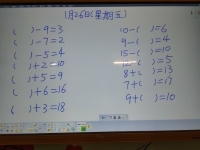 1月26日(星期五)
( )-9=3
( )-7=2
( )-5=4
( )+2=10
( )+5=9
( )+6=16
( )+3=18
10-( )=6
9-( )=4
15-( )=10
12-( )=5
8+( )=13
7+( )=17
9+( )=10